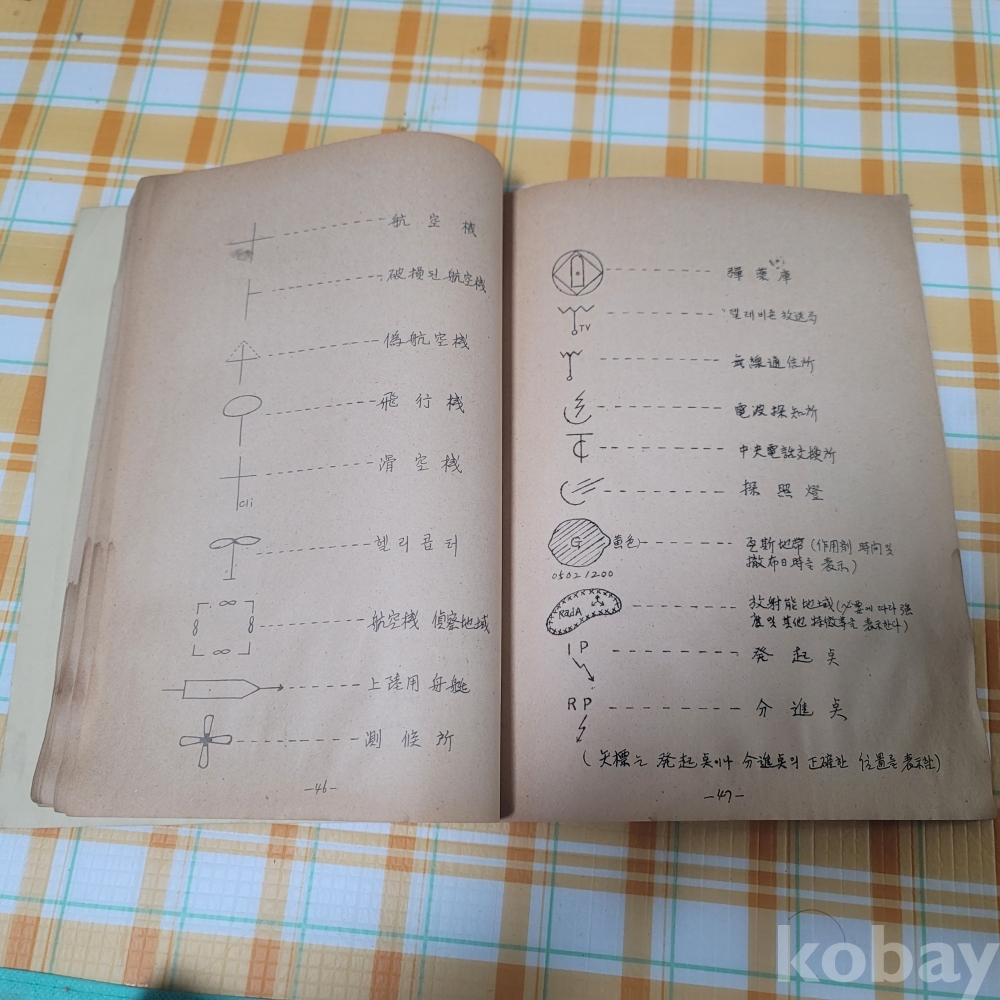 航空機
破損된 航空機
偽航空機
飛行機
滑空機
Cli
헬리곱터
航空機 偵察地域
上陸用 舟艇
測候所
-46-
彈薬庫
TV
텔레비죤 放送局
無線通信所
電波探知所
中央電話交換所
探照燈
G
黄色
05021200
瓦斯地帶 (作用剤 時間 및
撒布日時를 表示)
RadA
放射能地域(必要에 따라 强
度 및 其他 特徵等을 表示한다)
IP
発起点
RP
分進点
(矢標는 発起点이나 分進点의 正確한 位置를 表示함)
-47-
kobay